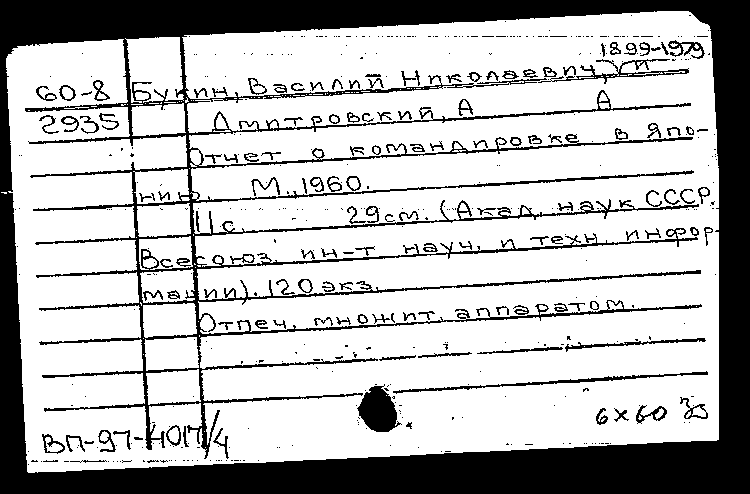 1899-1979
60-8 Букин, Василий Николаевич, и
2935 Дмитровский, А А
Отчет о командировке в Япо-
нию. М., 1960.
11 с. 29 см. (Акад. наук СССР.
Всесоюз. ин-т науч. и техн. инфор-
мации). 120 экз.
Отпеч. множит. аппаратом.
ВП-97-4017/4 6х60